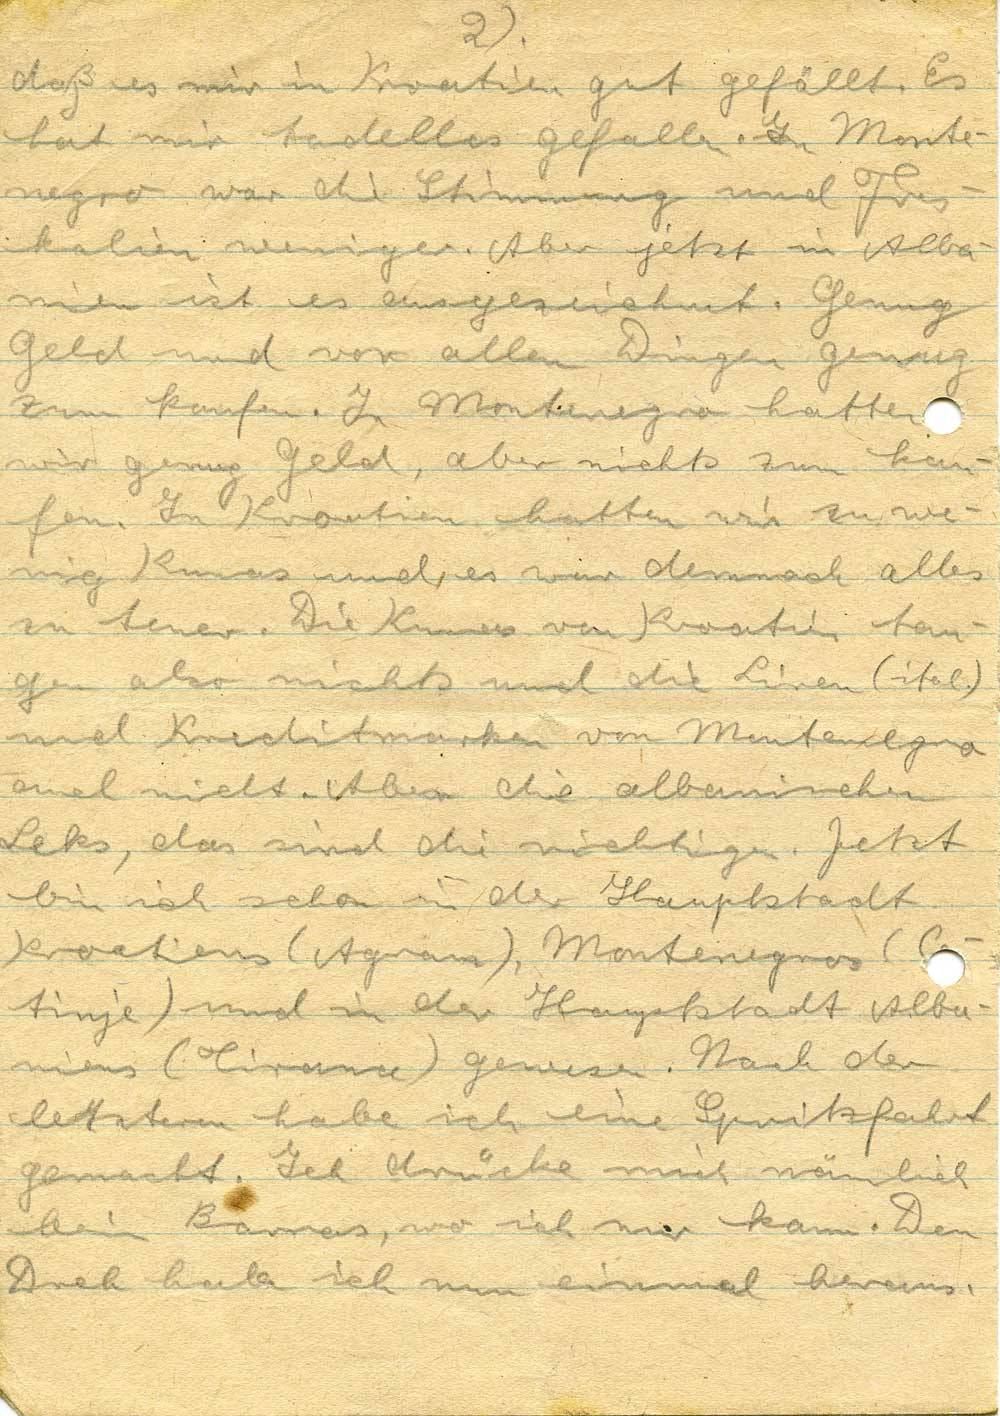 2).
daß es mir in Kroatien gut gefällt. Es
hat mir tadellos gefallen. In Monte-
negro war die Stimmung und Fres-
kalien weniger. Aber jetzt in Alba-
nien ist es ausgezeichnet. Genug
Geld und vor allen Dingen genug
zum kaufen. In Montenegro hatten
wir genug Geld, aber nichts zum kau-
fen. In Kroatien hatten wir zu we-
nig Kunas und es war demnach alles
zu teuer. Die Kunas von Kroatien tau-
gen also nichts und die Liren (ital.)
und Kreditmarken von Montenegro
auch nicht. Aber die albanischen
Leks, das sind die richtigen. Jetzt
bin ich schon in der Hauptstadt
Kroatiens (Agram), Montenegros (Ce-
tinje) und in der Hauptstadt Alba-
niens (Tirana) gewesen. Nach der
letzteren habe ich eine Spritzfahrt
gemacht. Ich drücke mich nämlich
bein Barras, wo ich nur kann. Den
Dreh habe ich nun einmal heraus.